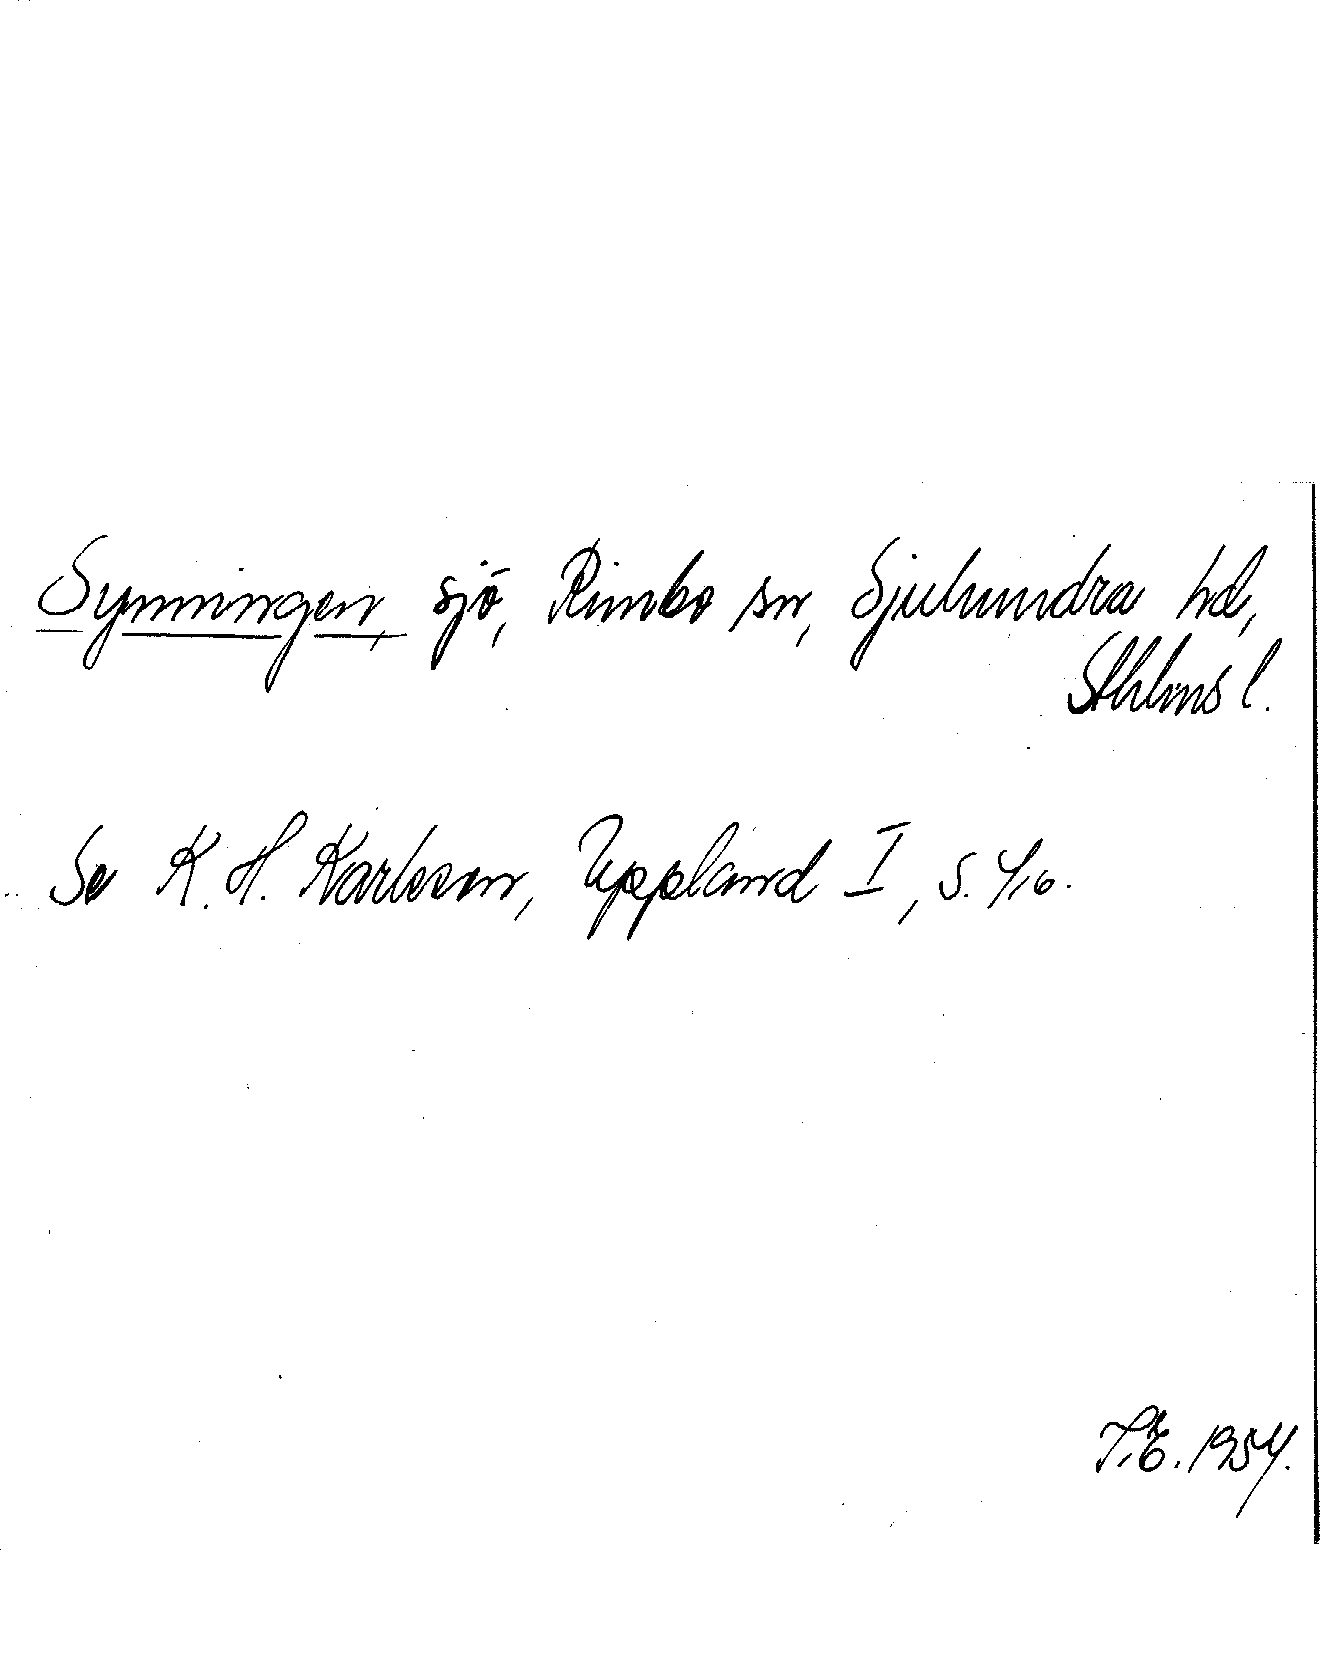 Synningen, sjö, Rimbo sn, Sjuhundra hd,
Sthlms l.
Se K. H. Karlsson, Uppland I, s. 416.
T.E. 1954.